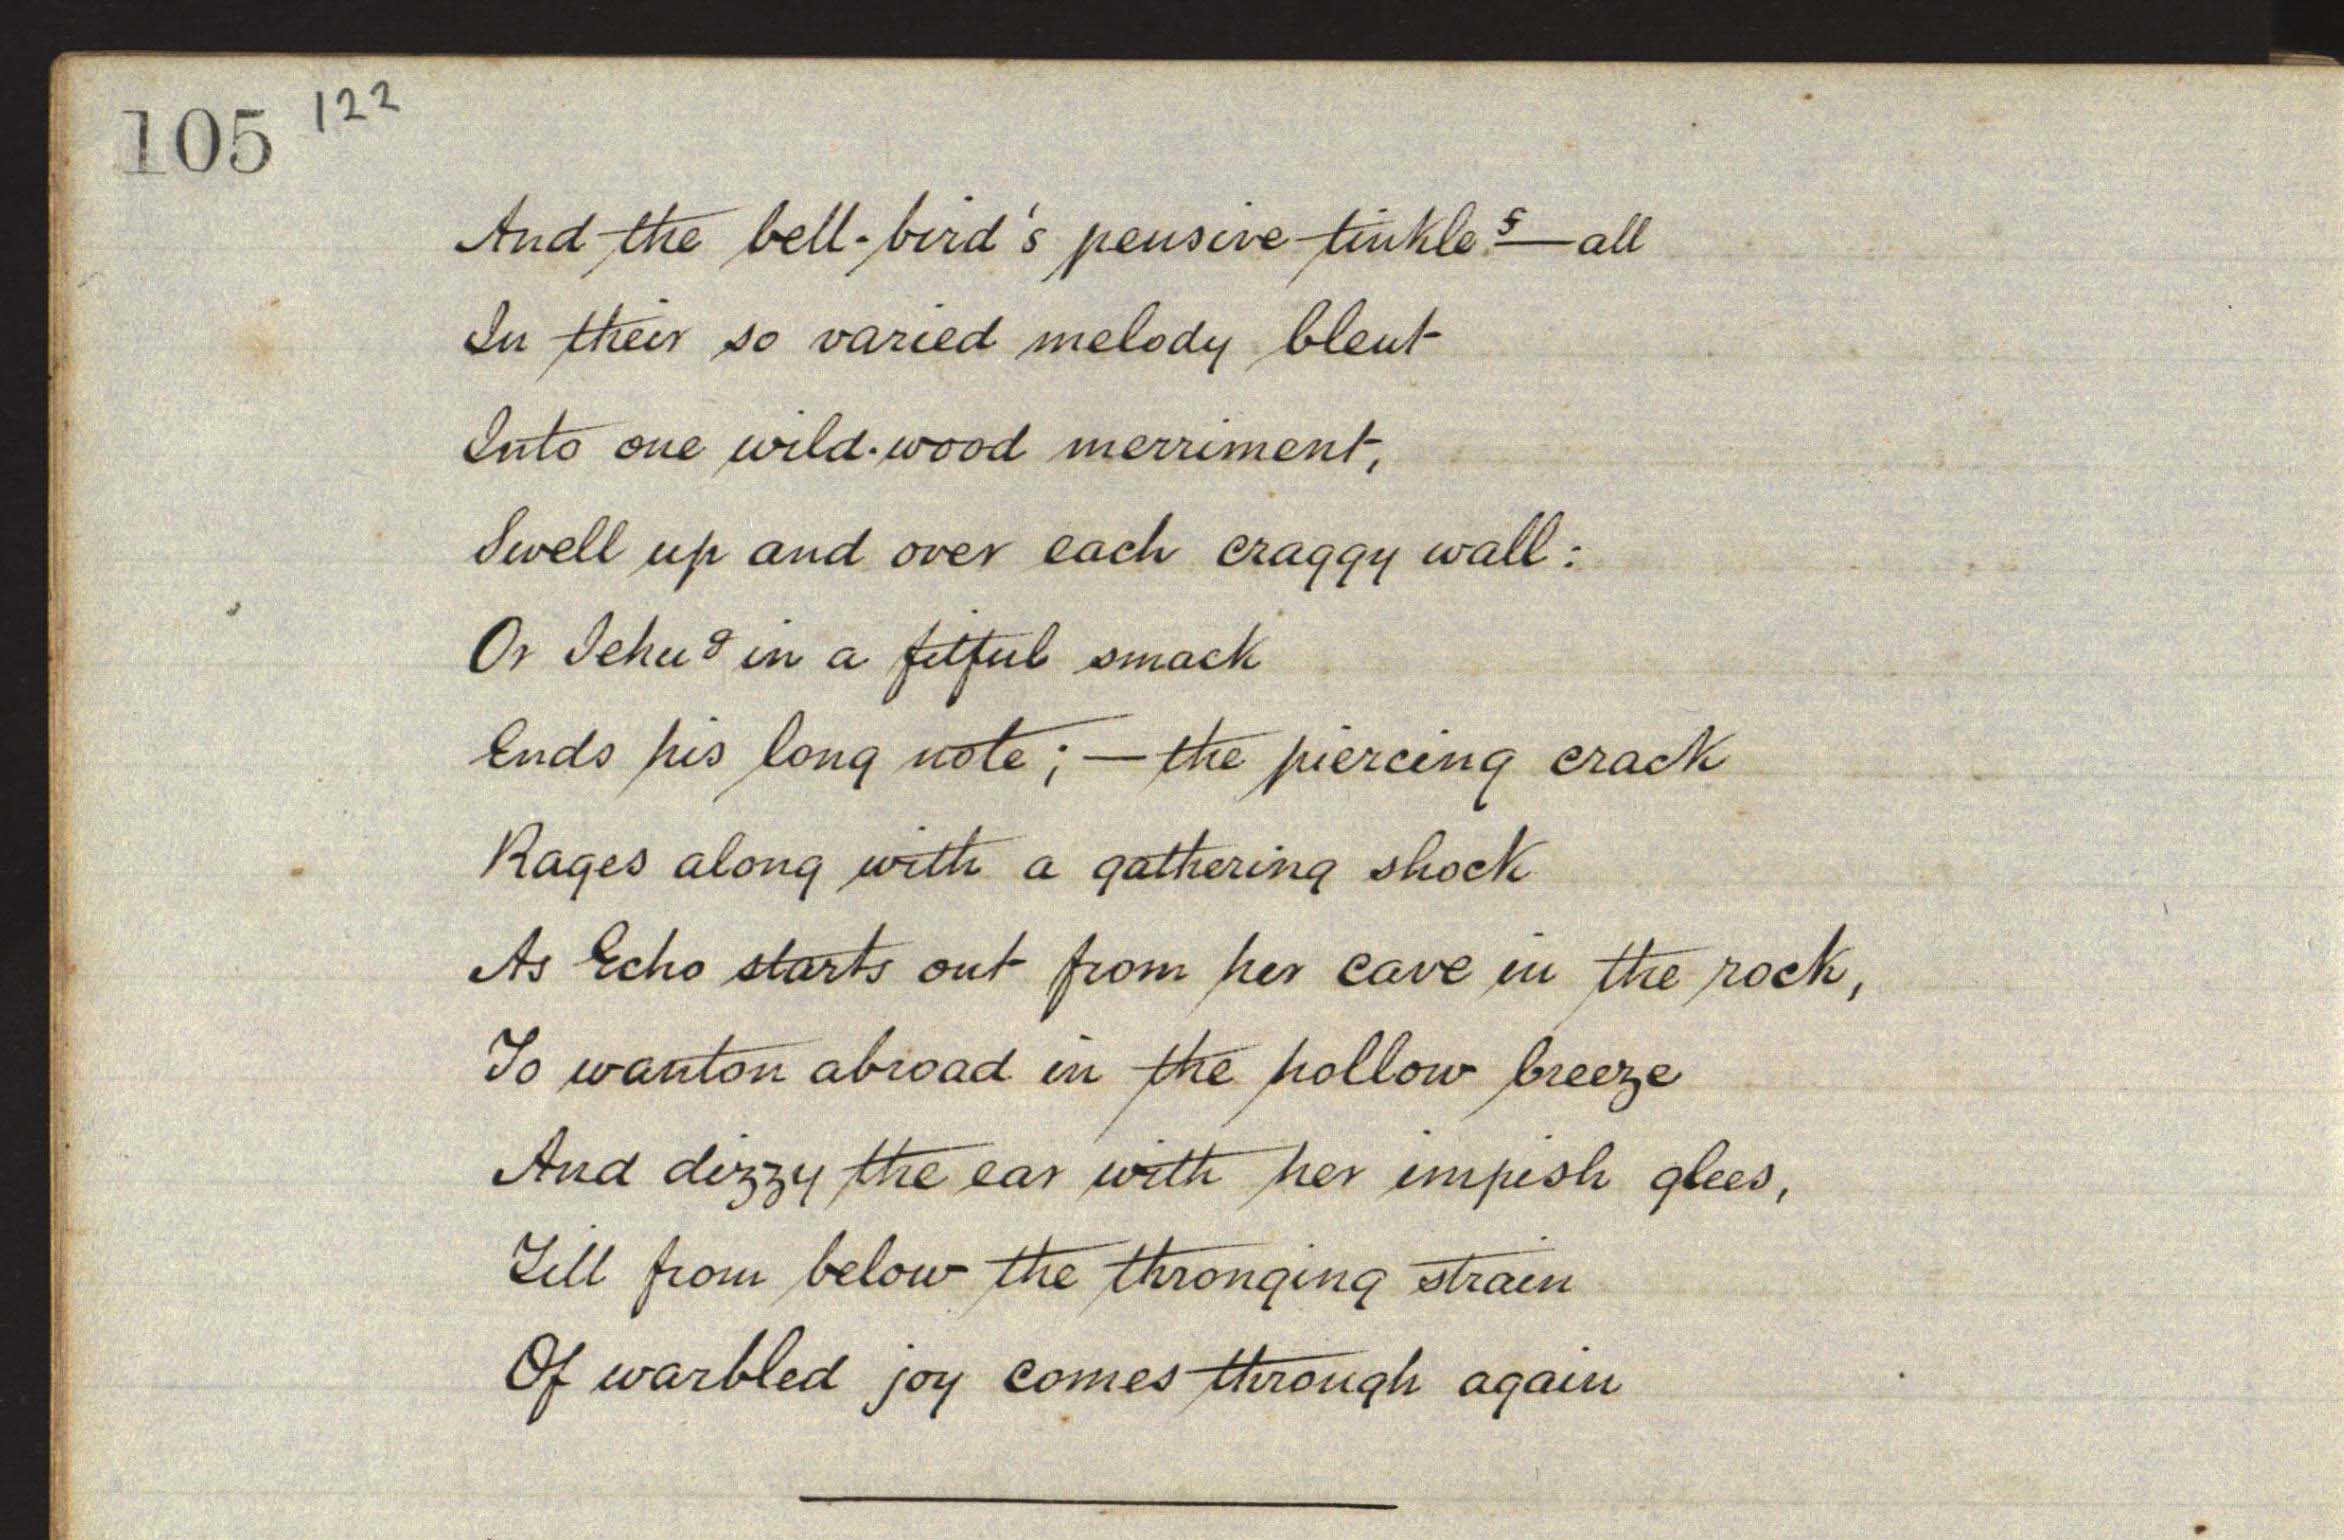 105 122
And the bell-bird's pensive tinkle § — all
In their so varied melody blent
Into one wild-wood merriment,
Swell up and over each craggy wall:
Or Jehu in a fitful smack
Ends his long note; — the piercing crack
Rages along with a gathering shock
As Echo starts out from her cave in the rock,
To wanton abroad in the hollow breeze
And dizzy the ear with her impish glees,
Till from below the thronging strain
Of warbled joy comes through again